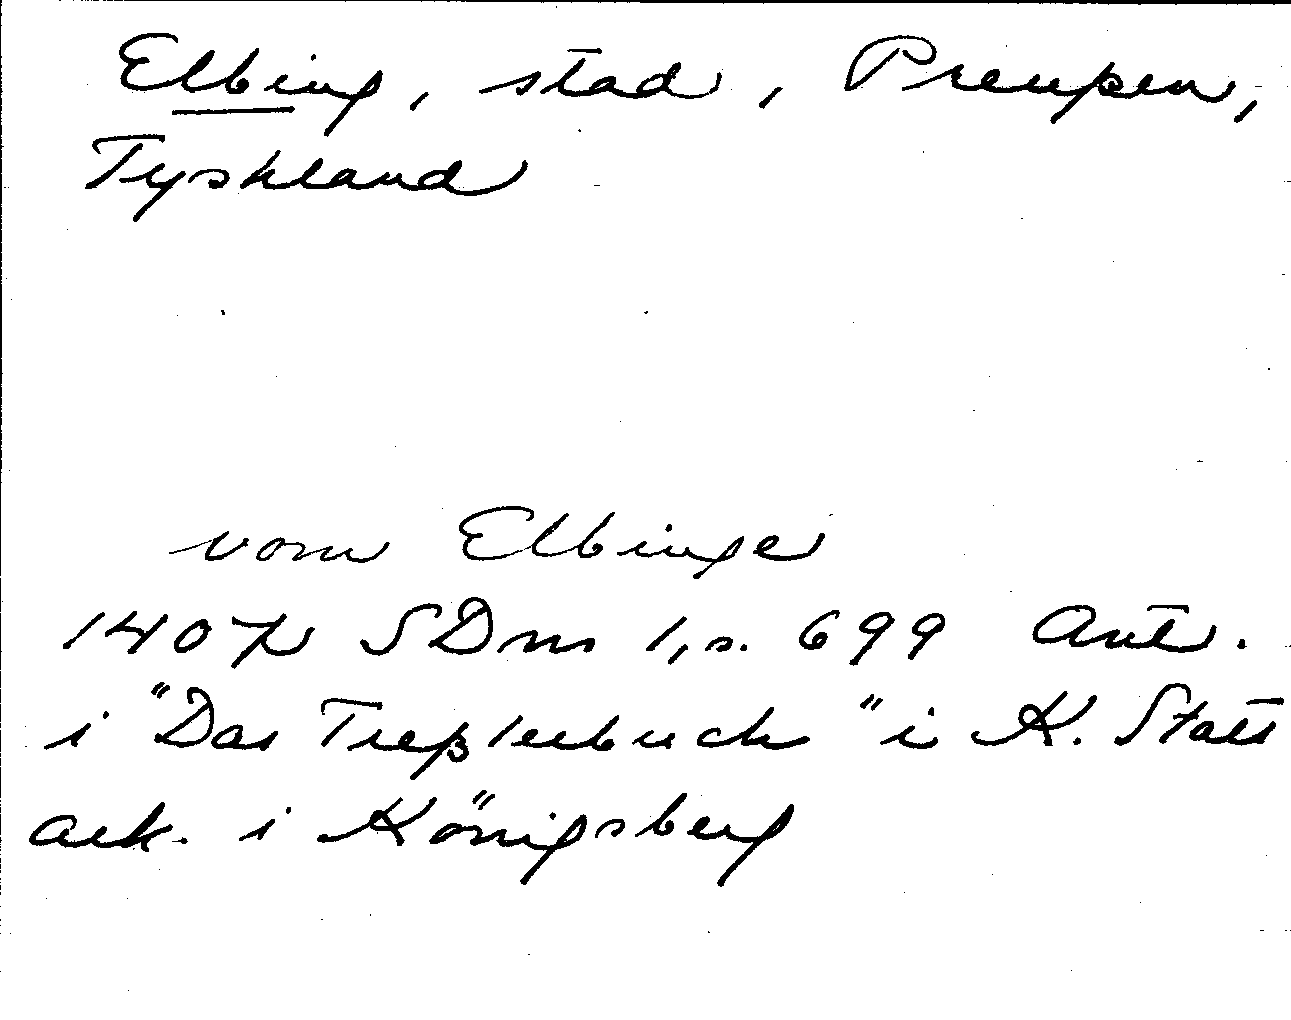 Elbing, stad, Preußen,
Tyskland
vom Elbinge
1407 SDns 1, s. 699 Ant.
i "Das Treßlerbuch" i K. Stats
ark. i Königsberg